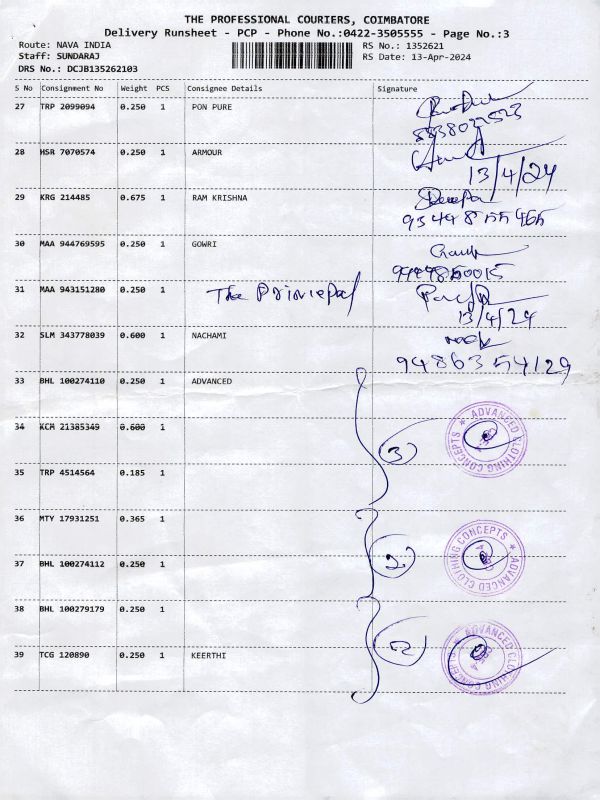 THE PROFESSIONAL COURIERS, COIMBATORE
Delivery Runsheet - PCP - Phone No.:0422-3505555 - Page No.:3
Route: NAVA INDIA
RS No.: 1352621
Staff: SUNDARAJ
RS Date: 13-Apr-2024
DRS No.: DCJB135262103
S No Consignment No Weight PCS Consignee Details Signature
27 TRP 2099094 0.250 1 PON PURE
28 HSR 7070574 0.250 1 ARMOUR
13/4/24
29 KRG 214485 0.675 1 RAM KRISHNA
30 MAA 944769595 0.250 1 GOWRI
31 MAA 943151280 0.250 1 The Principal
13/4/24
32 SLM 343778039 0.600 1 NACHAMI
9486354129
33 BHL 100274110 0.250 1 ADVANCED
34 KCM 21385349 0.600 1
3
ADVANCED CLOTHING CONCEPTS
35 TRP 4514564 0.185 1
36 MTY 17931251 0.365 1
37 BHL 100274112 0.250 1
2
ADVANCED CLOTHING CONCEPTS
38 BHL 100279179 0.250 1
2
ADVANCED CLOTHING
39 TCG 120890 0.250 1 KEERTHI